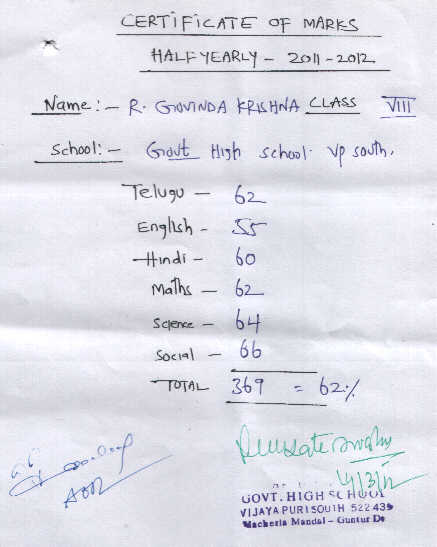 CERTIFICATE OF MARKS
HALF YEARLY - 2011-2012
Name:- R. GOVINDA KRISHNA CLASS VIII
School:- Govt High School. VP South.
Telugu - 62
English - 55
Hindi - 60
Maths - 62
Science - 64
Social - 66
TOTAL 369 = 62%
4/3/12
GOVT. HIGH SCHOOL
VIJAYAPURI SOUTH 522 439
Macherla Mandal - Guntur Dt